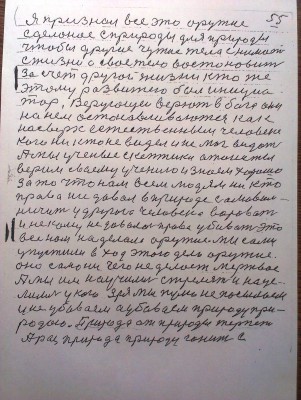 55
(Я признал все это оружие
сделоное с природы для природы
чтобы другие чужие тела снимать
с жизни а своего востоновить
за счет другой жизни кто же
этому развитого был инициа-
тор, Верующи верют в бога они
на нем остонавливаются как
на сверх естественным человеке
кого ни кто не видел и не мог видать
А мы ученые скептики атеисты
верим своему учению и знаем хорошо
за то что нам всем людям ни кто
права не довал в природе самоволь-
ничит у другого человека воровать
и не кому не довал права убивать это
все нам наделала оружие. мы сами
упустили в ход этого дело оружие.
оно само ни чего не делает мертвое
А мы им научились стрелят и наце-
лили у кого зря мы пулю не посылаем
и не убиваем а убиваем природу при-
родою. Природа от природы терпит
А раз природа природу гонит с